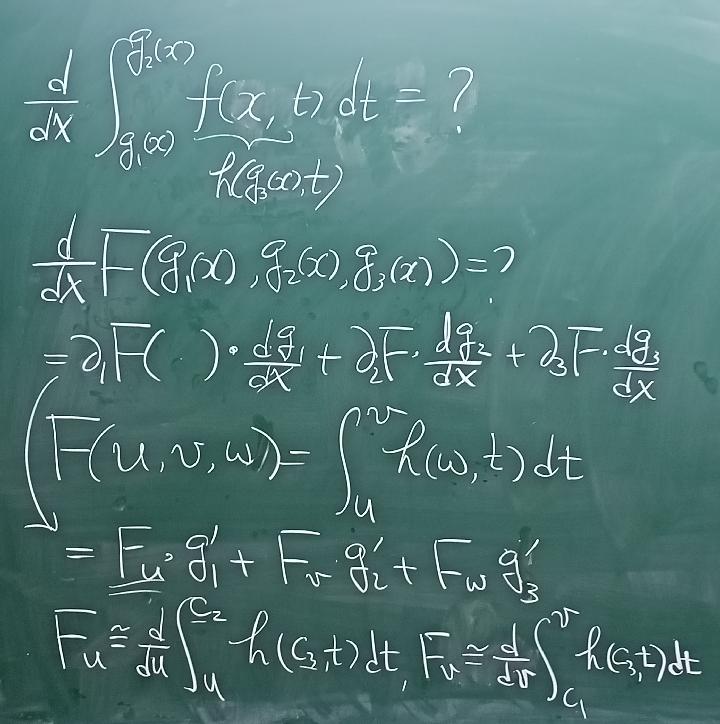 d/dx ∫_{g₁(x)}^{g₂(x)} f(x, t) dt = ?
h(g₃(x), t)
d/dx F(g₁(x), g₂(x), g₃(x)) = ?
= ∂₁F( ) · dg₁/dx + ∂₂F · dg₂/dx + ∂₃F · dg₃/dx
F(u, v, w) = ∫_u^v h(w, t) dt
= F_u · g₁′ + F_v g₂′ + F_w g₃′
F_u ≅ d/du ∫_u^{c₂} h(c₃, t) dt, F_v ≅ d/dv ∫_{c₁}^v h(c₃, t) dt